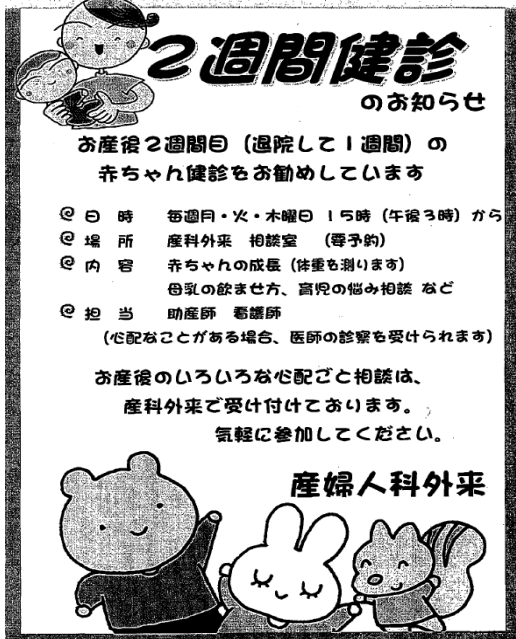 2週間健診
のお知らせ
お産後2週間目(退院して1週間)の
赤ちゃん健診をお勧めしています
@日 時 毎週月・火・木曜日 15時(午後3時)から
@場 所 産科外来 相談室 (要予約)
@内 容 赤ちゃんの成長(体重を測ります)
母乳の飲ませ方、育児の悩み相談 など
@担 当 助産師 看護師
(心配なことがある場合、医師の診察を受けられます)
お産後のいろいろな心配ごと相談は、
産科外来で受け付けております。
気軽に参加してください。
産婦人科外来